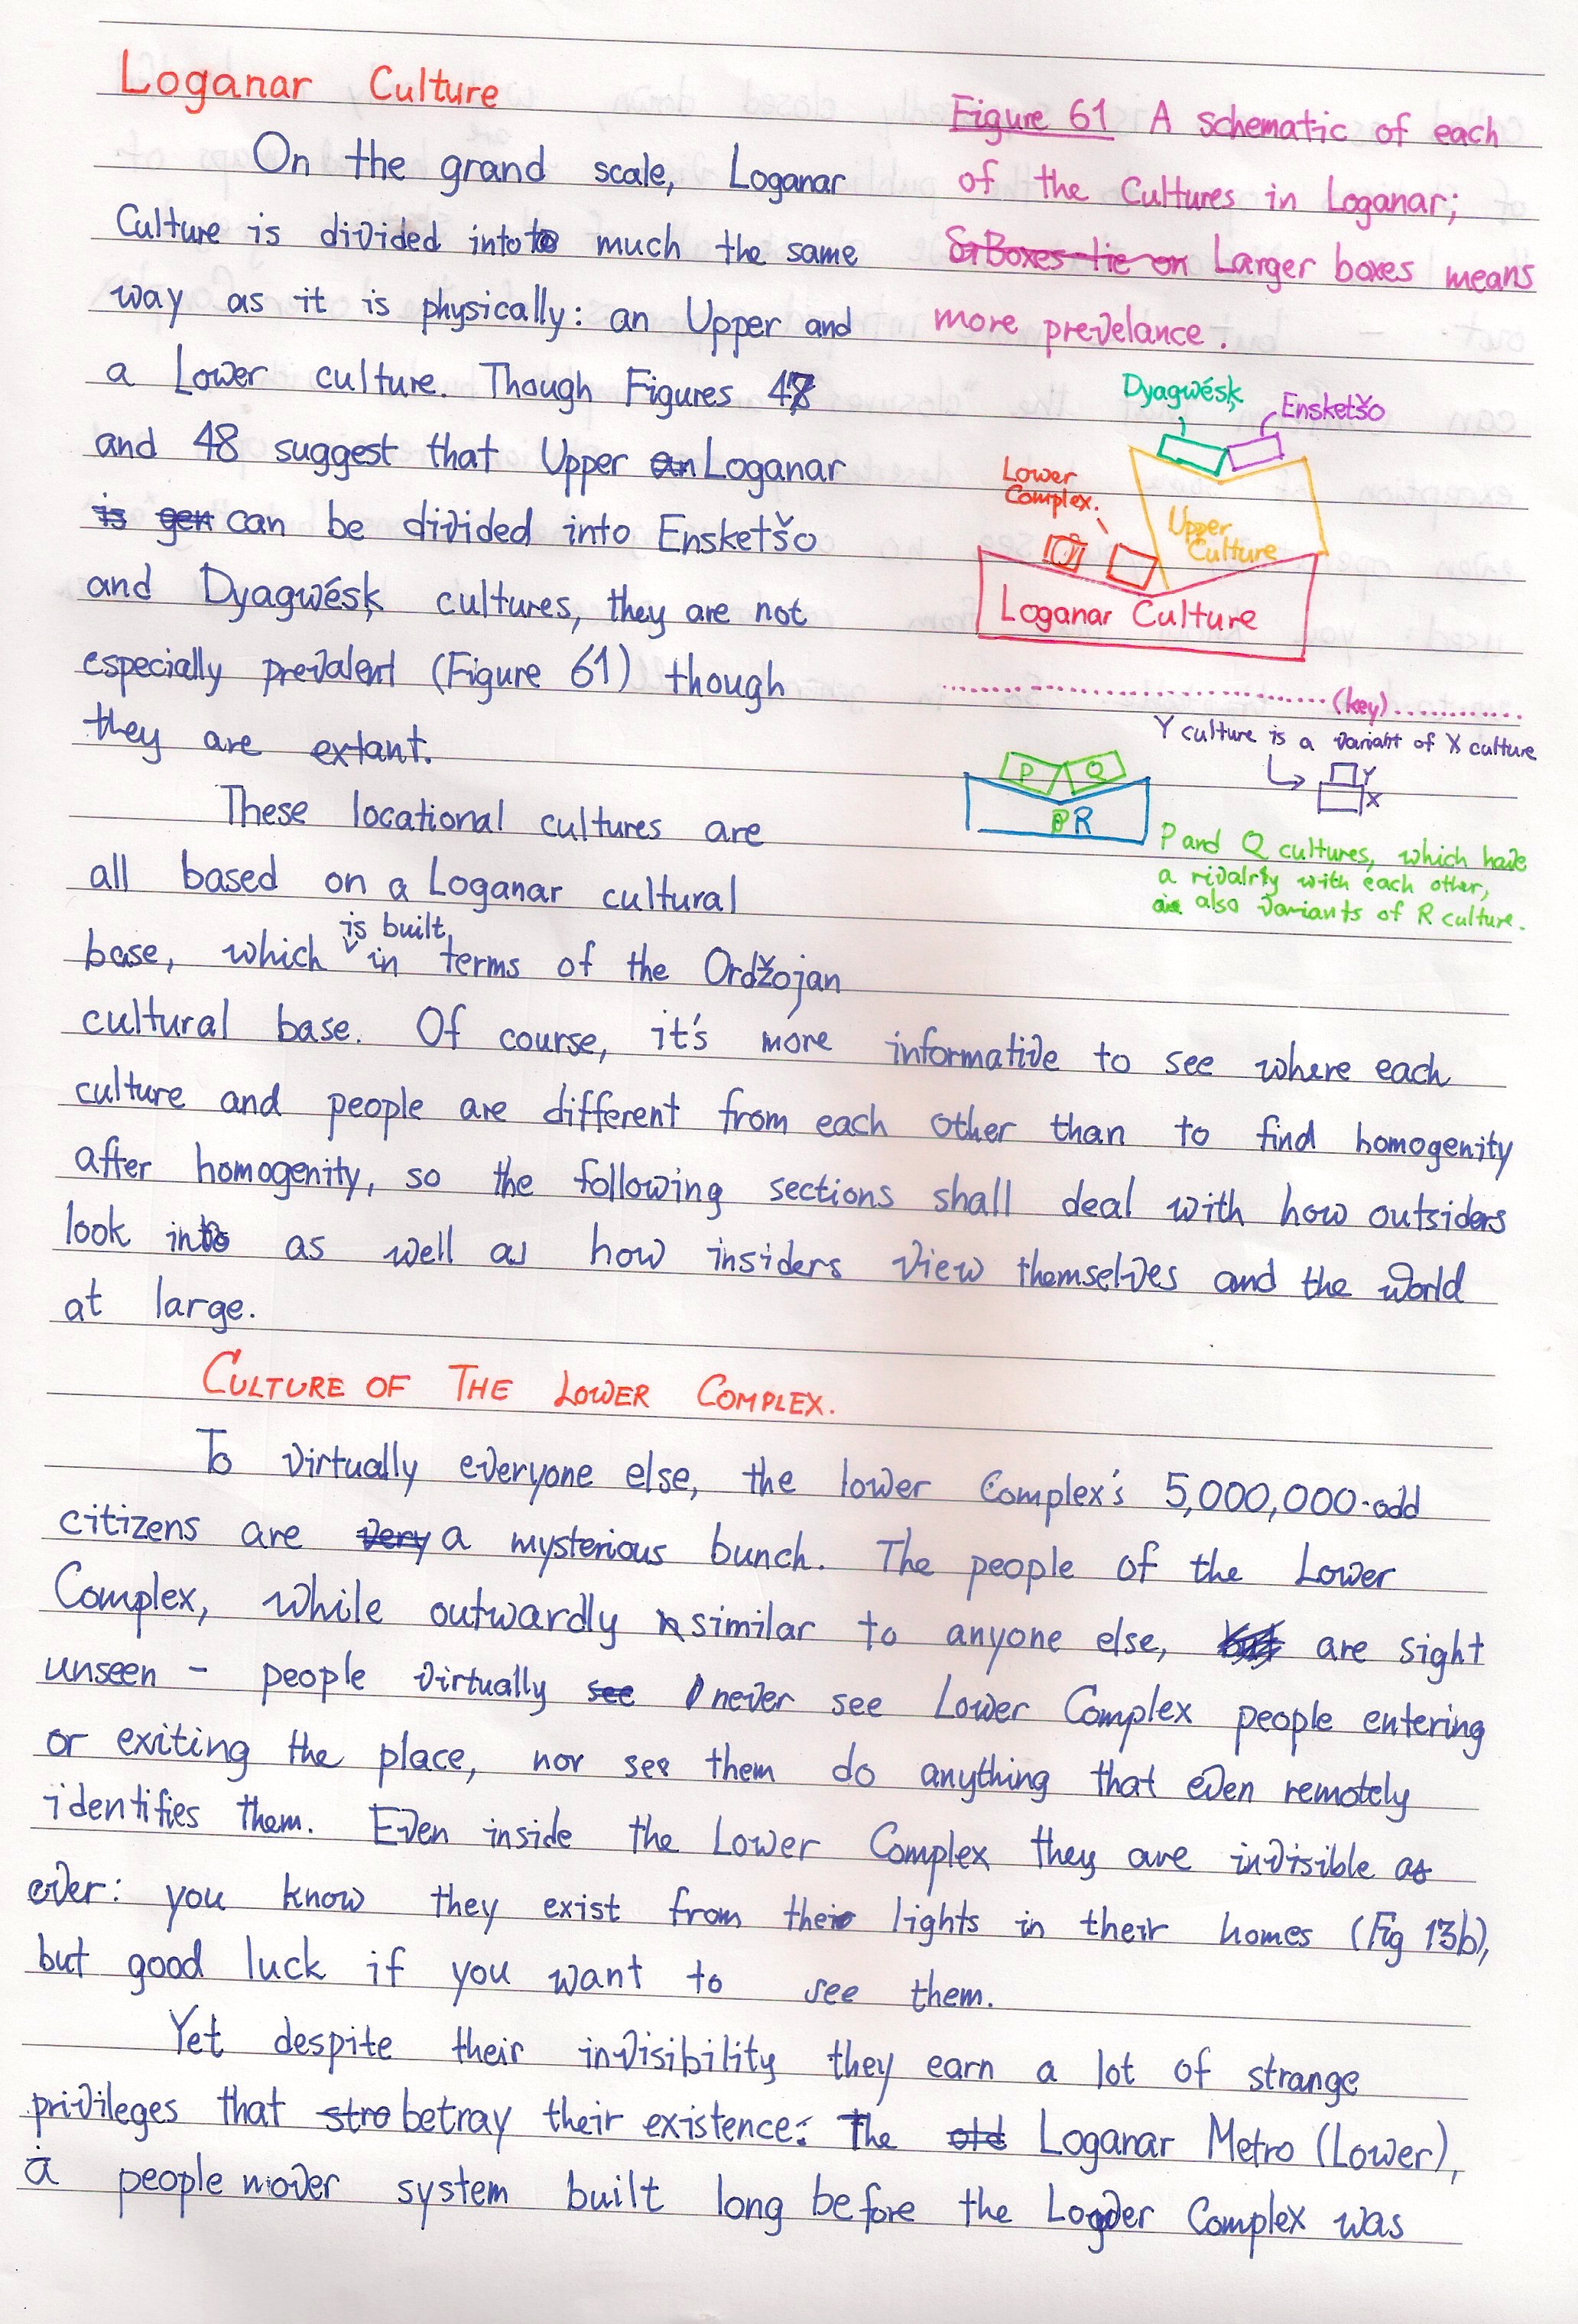 Loganar Culture
On the grand scale, Loganar
Culture is divided into much the same
way as it is physically: an Upper and
a Lower culture. Though Figures 47
and 48 suggest that Upper Loganar
can be divided into Ensketšo
and Dyagwésķ cultures, they are not
especially prevalent (Figure 61) though
they are extant.
These locational cultures are
all based on a Loganar cultural
base, which is built in terms of the Ordžojan
cultural base. Of course, it's more informative to see where each
culture and people are different from each other than to find homogenity
after homogenity, so the following sections shall deal with how outsiders
look in as well as how insiders view themselves and the world
at large.
Figure 61 A schematic of each
of the Cultures in Loganar;
Boxes lie on Larger boxes means
more prevelance.
Dyagwésķ
Ensketšo
Lower
Complex.
Upper
Culture
Loganar Culture
(key)
Y culture is a variant of X culture
Y
X
P Q
R
P and Q cultures, which have
a rivalrly with each other,
also variants of R culture.
CULTURE OF THE LOWER COMPLEX.
To virtually everyone else, the lower Complex's 5,000,000-odd
citizens are very a mysterious bunch. The people of the Lower
Complex, while outwardly similar to anyone else, but are sight
unseen – people virtually see never see Lower Complex people entering
or exiting the place, nor see them do anything that even remotely
identifies them. Even inside the Lower Complex they are invisible as
ever: you know they exist from the lights in their homes (Fig 13b),
but good luck if you want to see them.
Yet despite their invisibility they earn a lot of strange
privileges that stro betray their existence: The old Loganar Metro (Lower),
a people mover system built long before the Lower Complex was